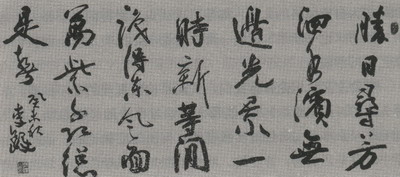 勝日尋芳
泗水濱無
邊光景一
時新等閒
識得東風面
萬紫千紅總
是春
癸未秋
李鐸